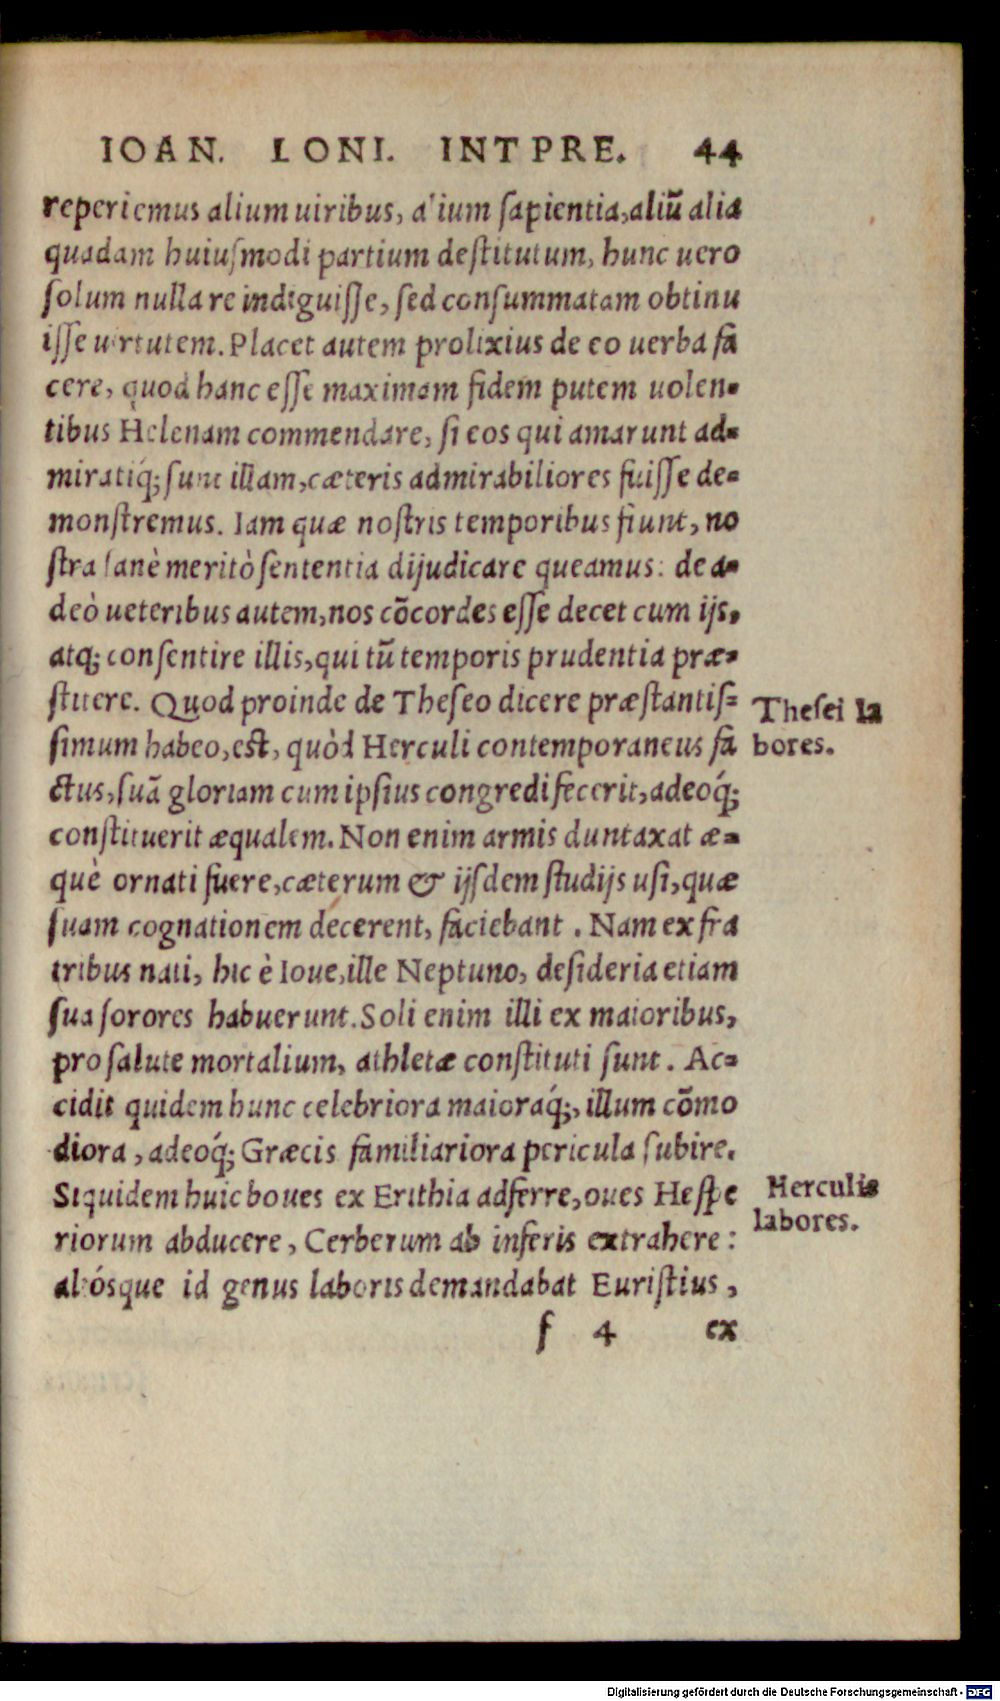 IOAN. LONI. INTPRE. 44
reperiemus alium uiribus, alium ſapientia, aliũ alia
quadam huiuſmodi partium deſtitutum, hunc uero
ſolum nulla re indiguiſſe, ſed conſummatam obtinu
iſſe uirtutem. Placet autem prolixius de eo uerba fa
cere, quod hanc eſſe maximam fidem putem uolen-
tibus Helenam commendare, ſi eos qui amarunt ad-
miratiq́; ſunt illam, cæteris admirabiliores fuiſſe de-
monſtremus. Iam quæ noſtris temporibus fiunt, no
ſtra ſanè meritò ſententia dijudicare queamus: de a-
deò ueteribus autem, nos cõcordes eſſe decet cum ijs,
atq; conſentire illis, qui tũ temporis prudentia præ-
ſtitere. Quod proinde de Theſeo dicere præſtantiſ-
ſimum habeo, eſt, quòd Herculi contemporaneus fa
ctus, ſuã gloriam cum ipſius congredi fecerit, adeoq́;
conſtituerit æqualem. Non enim armis duntaxat æ-
què ornati fuere, cæterum & ijſdem ſtudijs uſi, quæ
ſuam cognationem decerent, faciebant. Nam ex fra
tribus nati, hic è Ioue, ille Neptuno, deſideria etiam
ſua ſorores habuerunt. Soli enim illi ex maioribus,
pro ſalute mortalium, athletæ conſtituti ſunt. Ac-
cidit quidem hunc celebriora maioraq́;, illum cõmo
diora, adeoq́; Græcis familiariora pericula ſubire.
Siquidem huic boues ex Erithia adferre, oues Heſpe
riorum abducere, Cerberum ab inferis extrahere:
aliósque id genus laboris demandabat Euriſtius,
f 4 ex
Theſei la
bores.
Herculis
labores.
Digitalisierung gefördert durch die Deutsche Forschungsgemeinschaft - DFG